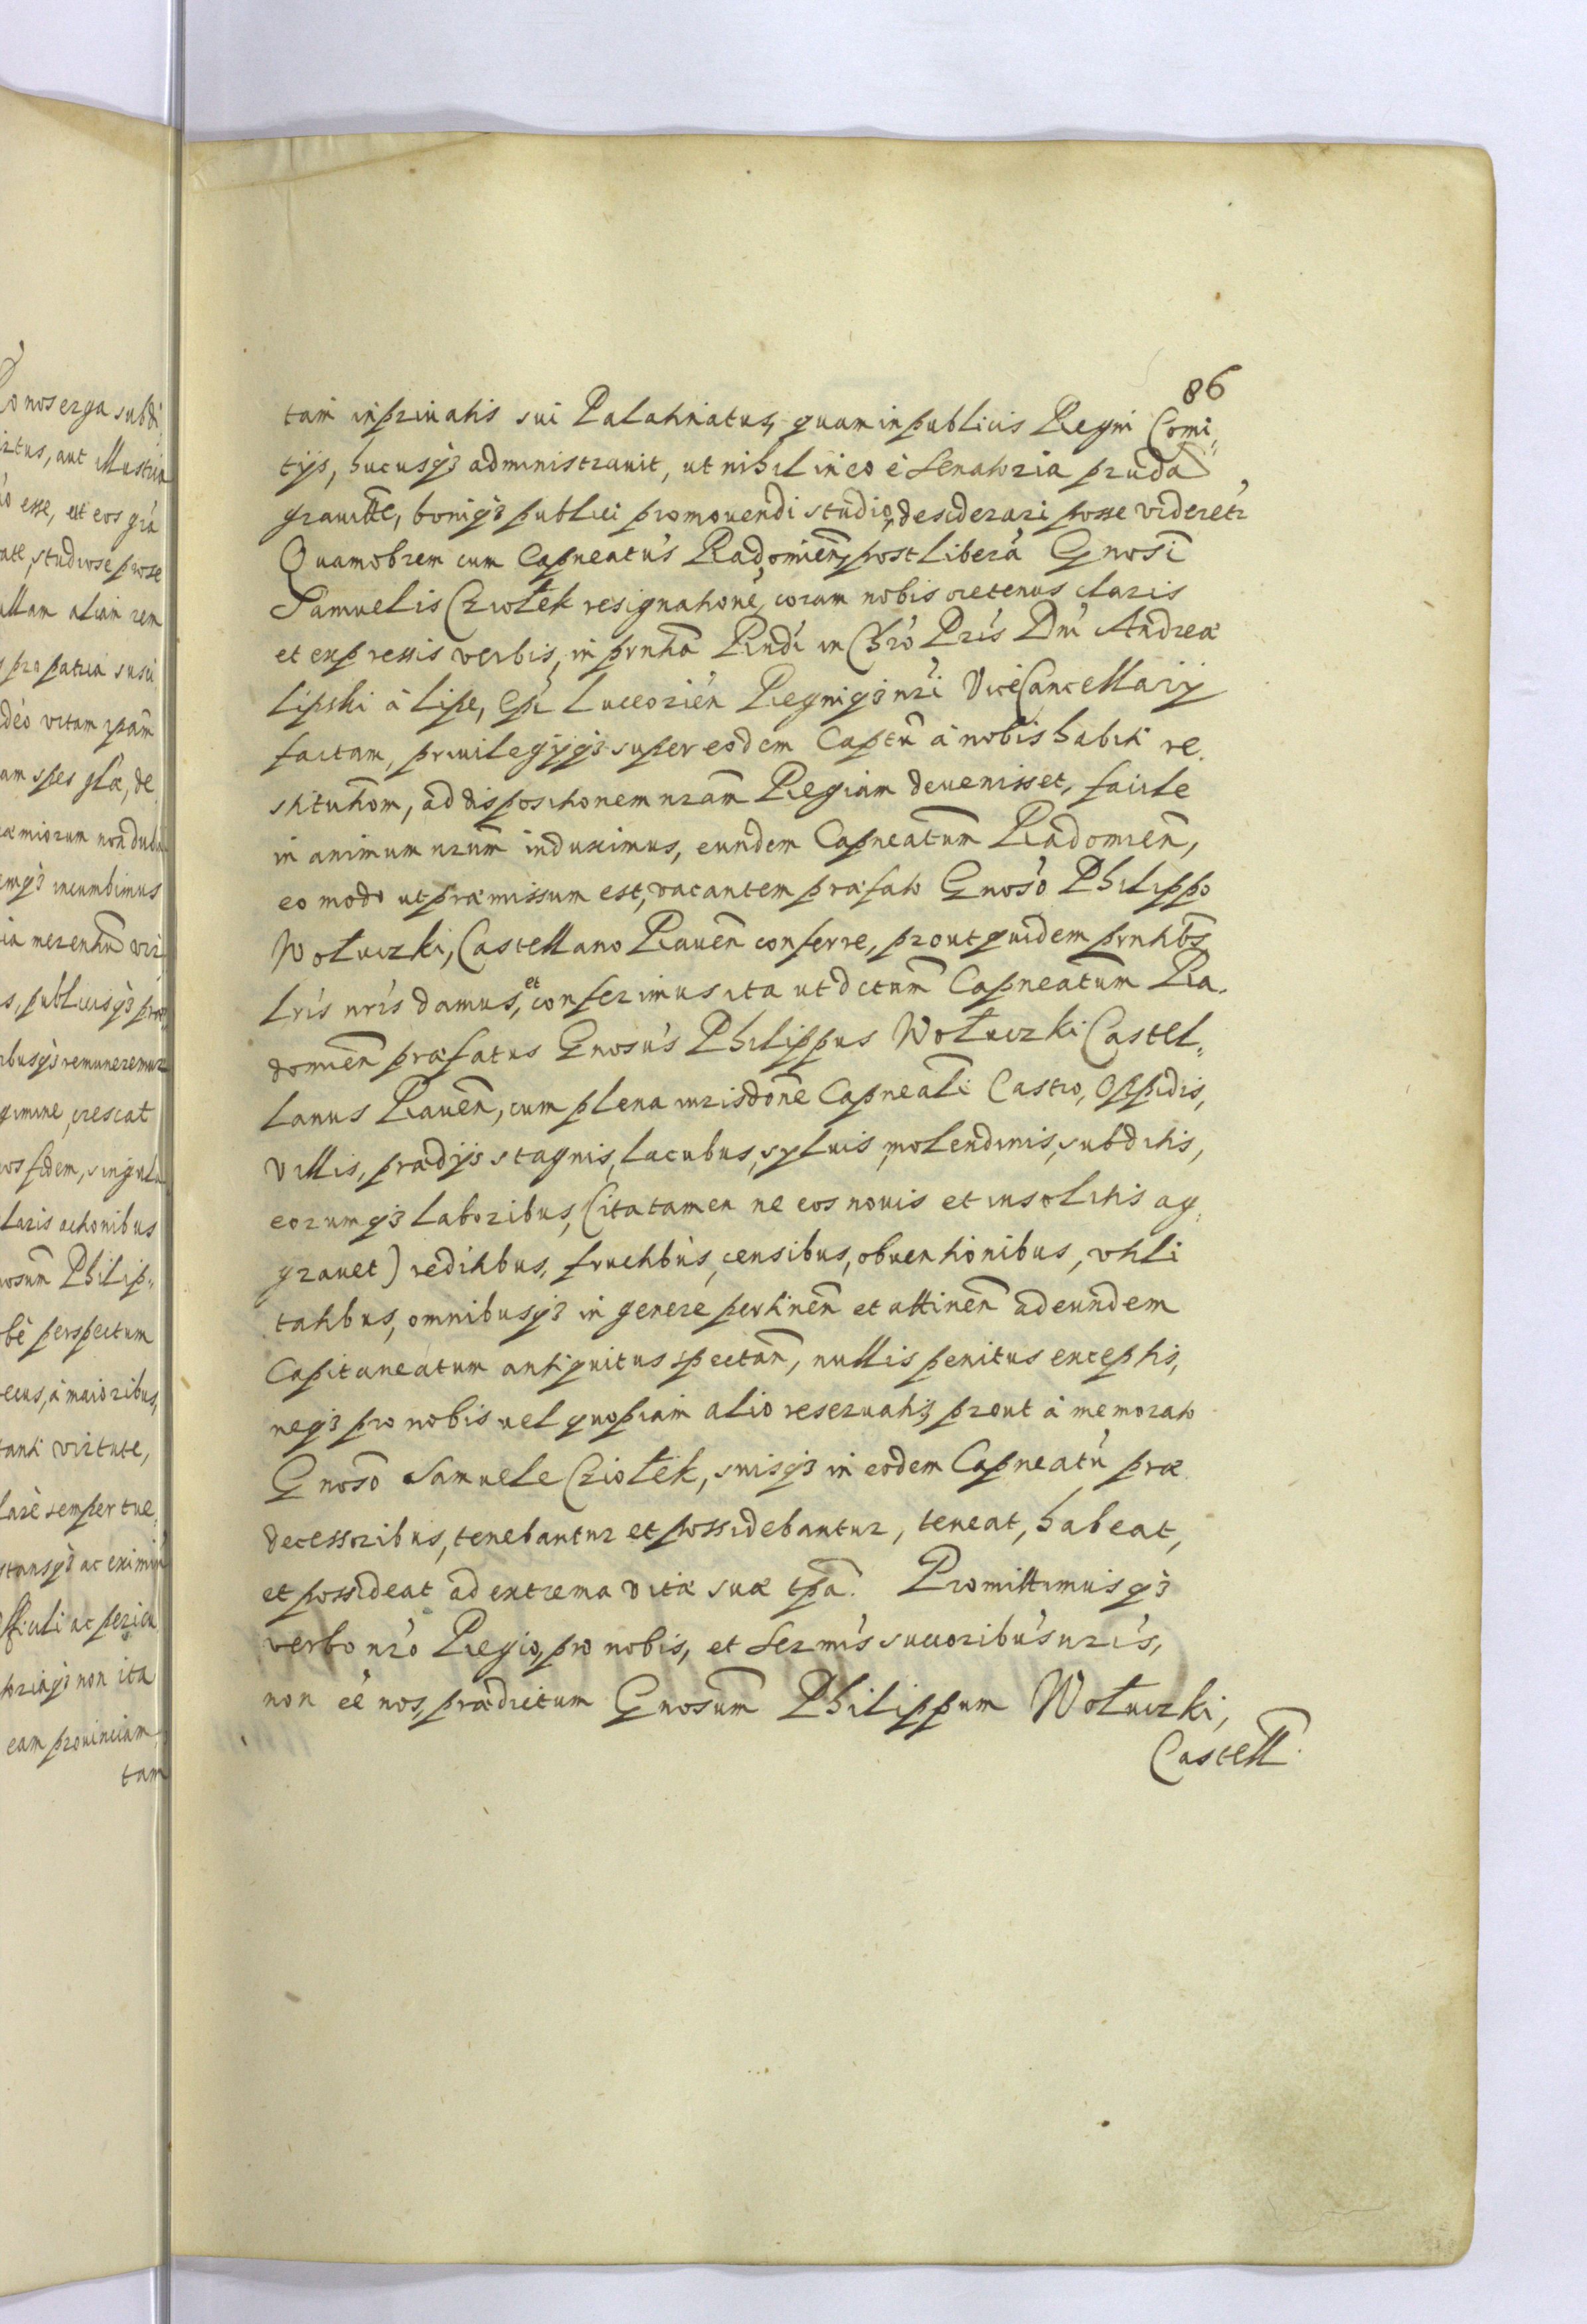 86
tam in priuatis sui Palatinatus, quam in publicis Regni Comi„
tijs, hucusq3 administrauit, ut nihil in eo è Senatoria prũda
grauitte, boniq3 publici promouendi studio, desiderari posse videret́r
Quamobrem cum Capneatu's Radomień, post liberã Gnosi
Samuelis Cziołek resignationē, coram nobis oretenus claris
et expressis verbis, in prntia Rndi in Chró Pris Dni Andreæ
Lipski à Lipe, Epi Luceorien Regniq3 nri ViceCancellarij
factam, priuilegijq3 super eodem Captũ à nobis habiti re„
stitutiom, ad dispositionem nram Regiam deuenisset, facile
in animum nrum induximus, eundem Capneatum Radomien,
eo modo ut præmissum est, vacantem præfato Gnoso Philippo
Wołuczki, Castellano Rauen conferre, prout quidem prntibs
Lris nris damus, et conferimus ita ut dctum Capneatum Ra„
domien præfatus Gnosus Philippus Wołuczki Castel„
lanus Rauen, cum plena iurisdone Capneali Castro, Oppidis,
villis, prædijs stagnis, lacubus, syluis, molendinis, subditis,
eorumq3 laboribus, (ita tamen ne eos nouis et insolitis ag„
grauet) reditibus, fructibus, censibus, obuentionibus, utili
tatibus, omnibusq3 in genere pertinen et attinen ad eundem
Capitaneatum antiquitus spectan, nullis penitus exceptis,
neq3 pro nobis uel quopiam alio reseruatis, prout à memorato
Gnoso Samuele Cziołek, suisq3 in eodem Capneatu præ
decessoribus, tenebantur et possidebantur, teneat, habeat,
et possideat ad extrema vitæ suæ tpa. Promittimusq3
verbo nro Regio, pro nobis, et Sermis succoribus nris,
non eē nos, prædictum Gnosum Philippum Wołuczki,
Castell